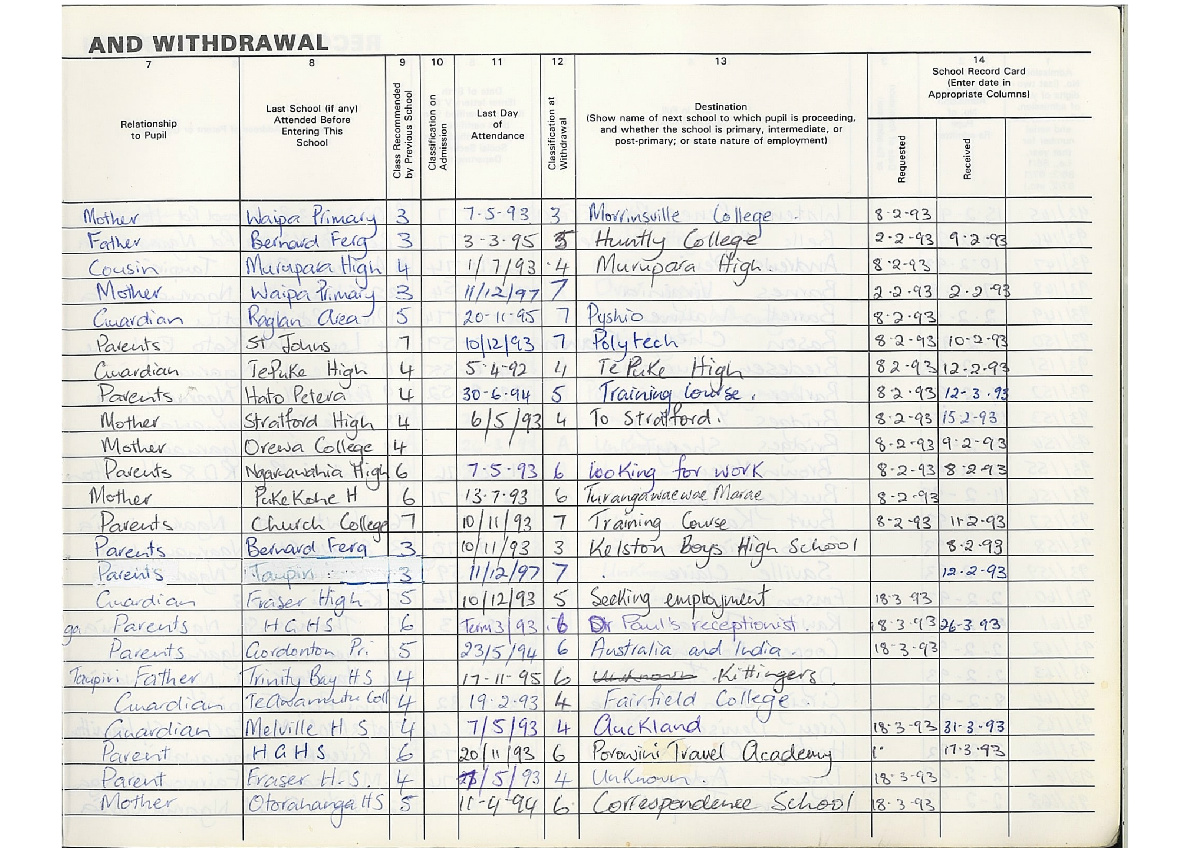 AND WITHDRAWAL
7 8 9 10 11 12 13 14
Relationship to Pupil
Last School (if any) Attended Before Entering This School
Class Recommended by Previous School
Classification on Admission
Last Day of Attendance
Classification at Withdrawal
Destination
(Show name of next school to which pupil is proceeding, and whether the school is primary, intermediate, or post-primary; or state nature of employment)
School Record Card
(Enter date in Appropriate Columns)
Requested
Received
Mother Waipa Primary 3 7-5-93 3 Morrinsville College 8-2-93
Father Bernard Ferg 3 3-3-95 5 Huntly College 2-2-93 9-2-93
Cousin Murupara High 4 1/7/93 4 Murupara High. 8-2-93
Mother Waipa Primary 3 11/12/97 7 2-2-93 2-2-93
Guardian Raglan Area 5 20-11-95 7 Pyshio 8-2-93
Parents St Johns 7 10/12/93 7 Polytech 8-2-93 10-2-93
Guardian TePuke High 4 5-4-92 4 Te Puke High 8 2-93 12-2-93
Parents Hato Petera 4 30-6-94 5 Training Course. 8-2-93 12-3-93
Mother Stratford High 4 6/5/93 4 To Stratford. 8-2-93 15-2-93
Mother Orewa College 4 8-2-93 9-2-93
Parents Ngaruawahia High 6 7-5-93 6 looking for work 8-2-93 8-2-93
Mother PukeKohe H 6 13-7-93 6 Turangawaewae Marae 8-2-93
Parents Church College 7 10/11/93 7 Training Course 8-2-93 11-2-93
Parents Bernard Ferg 3 10/11/93 3 Kelston Boys High School 8-2-93
Parents Taupiri 3 11/12/97 7 12-2-93
Guardian Fraser High 5 10/12/93 5 Seeking employment 18-3 93
ga Parents H G H S 6 Term 3/93 6 Dr Paul's receptionist. 18-3-93 26-3-93
Parents Gordonton Pr. 5 23/5/94 6 Australia and India. 18-3-93
Taupiri Father Trinity Bay HS 4 17-11-95 6 Unknown Kittingers.
Guardian TeAwamutu Coll 4 19-2-93 4 Fairfield College.
Guardian Melville H S 4 7/5/93 4 Auckland 18-3-93 31-3-93
Parent H G H S 6 20/11/93 6 Porowini Travel Academy 17-3-93
Parent Fraser H.S. 4 /5/93 4 Unknown. 18-3-93
Mother Otorahanga HS 5 11-4-94 6 Correspondence School 18-3-93